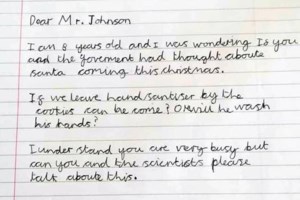 Dear Mr. Johnson
I am 8 years old and I was wondering Is you
and the goverment had thought aboute
santa coming this christmas.
If we leave hand santiser by the
cookies can he come? Or will he wash
his hands?
I under stand you are very busy but
can you and the scientists please
talk about this.